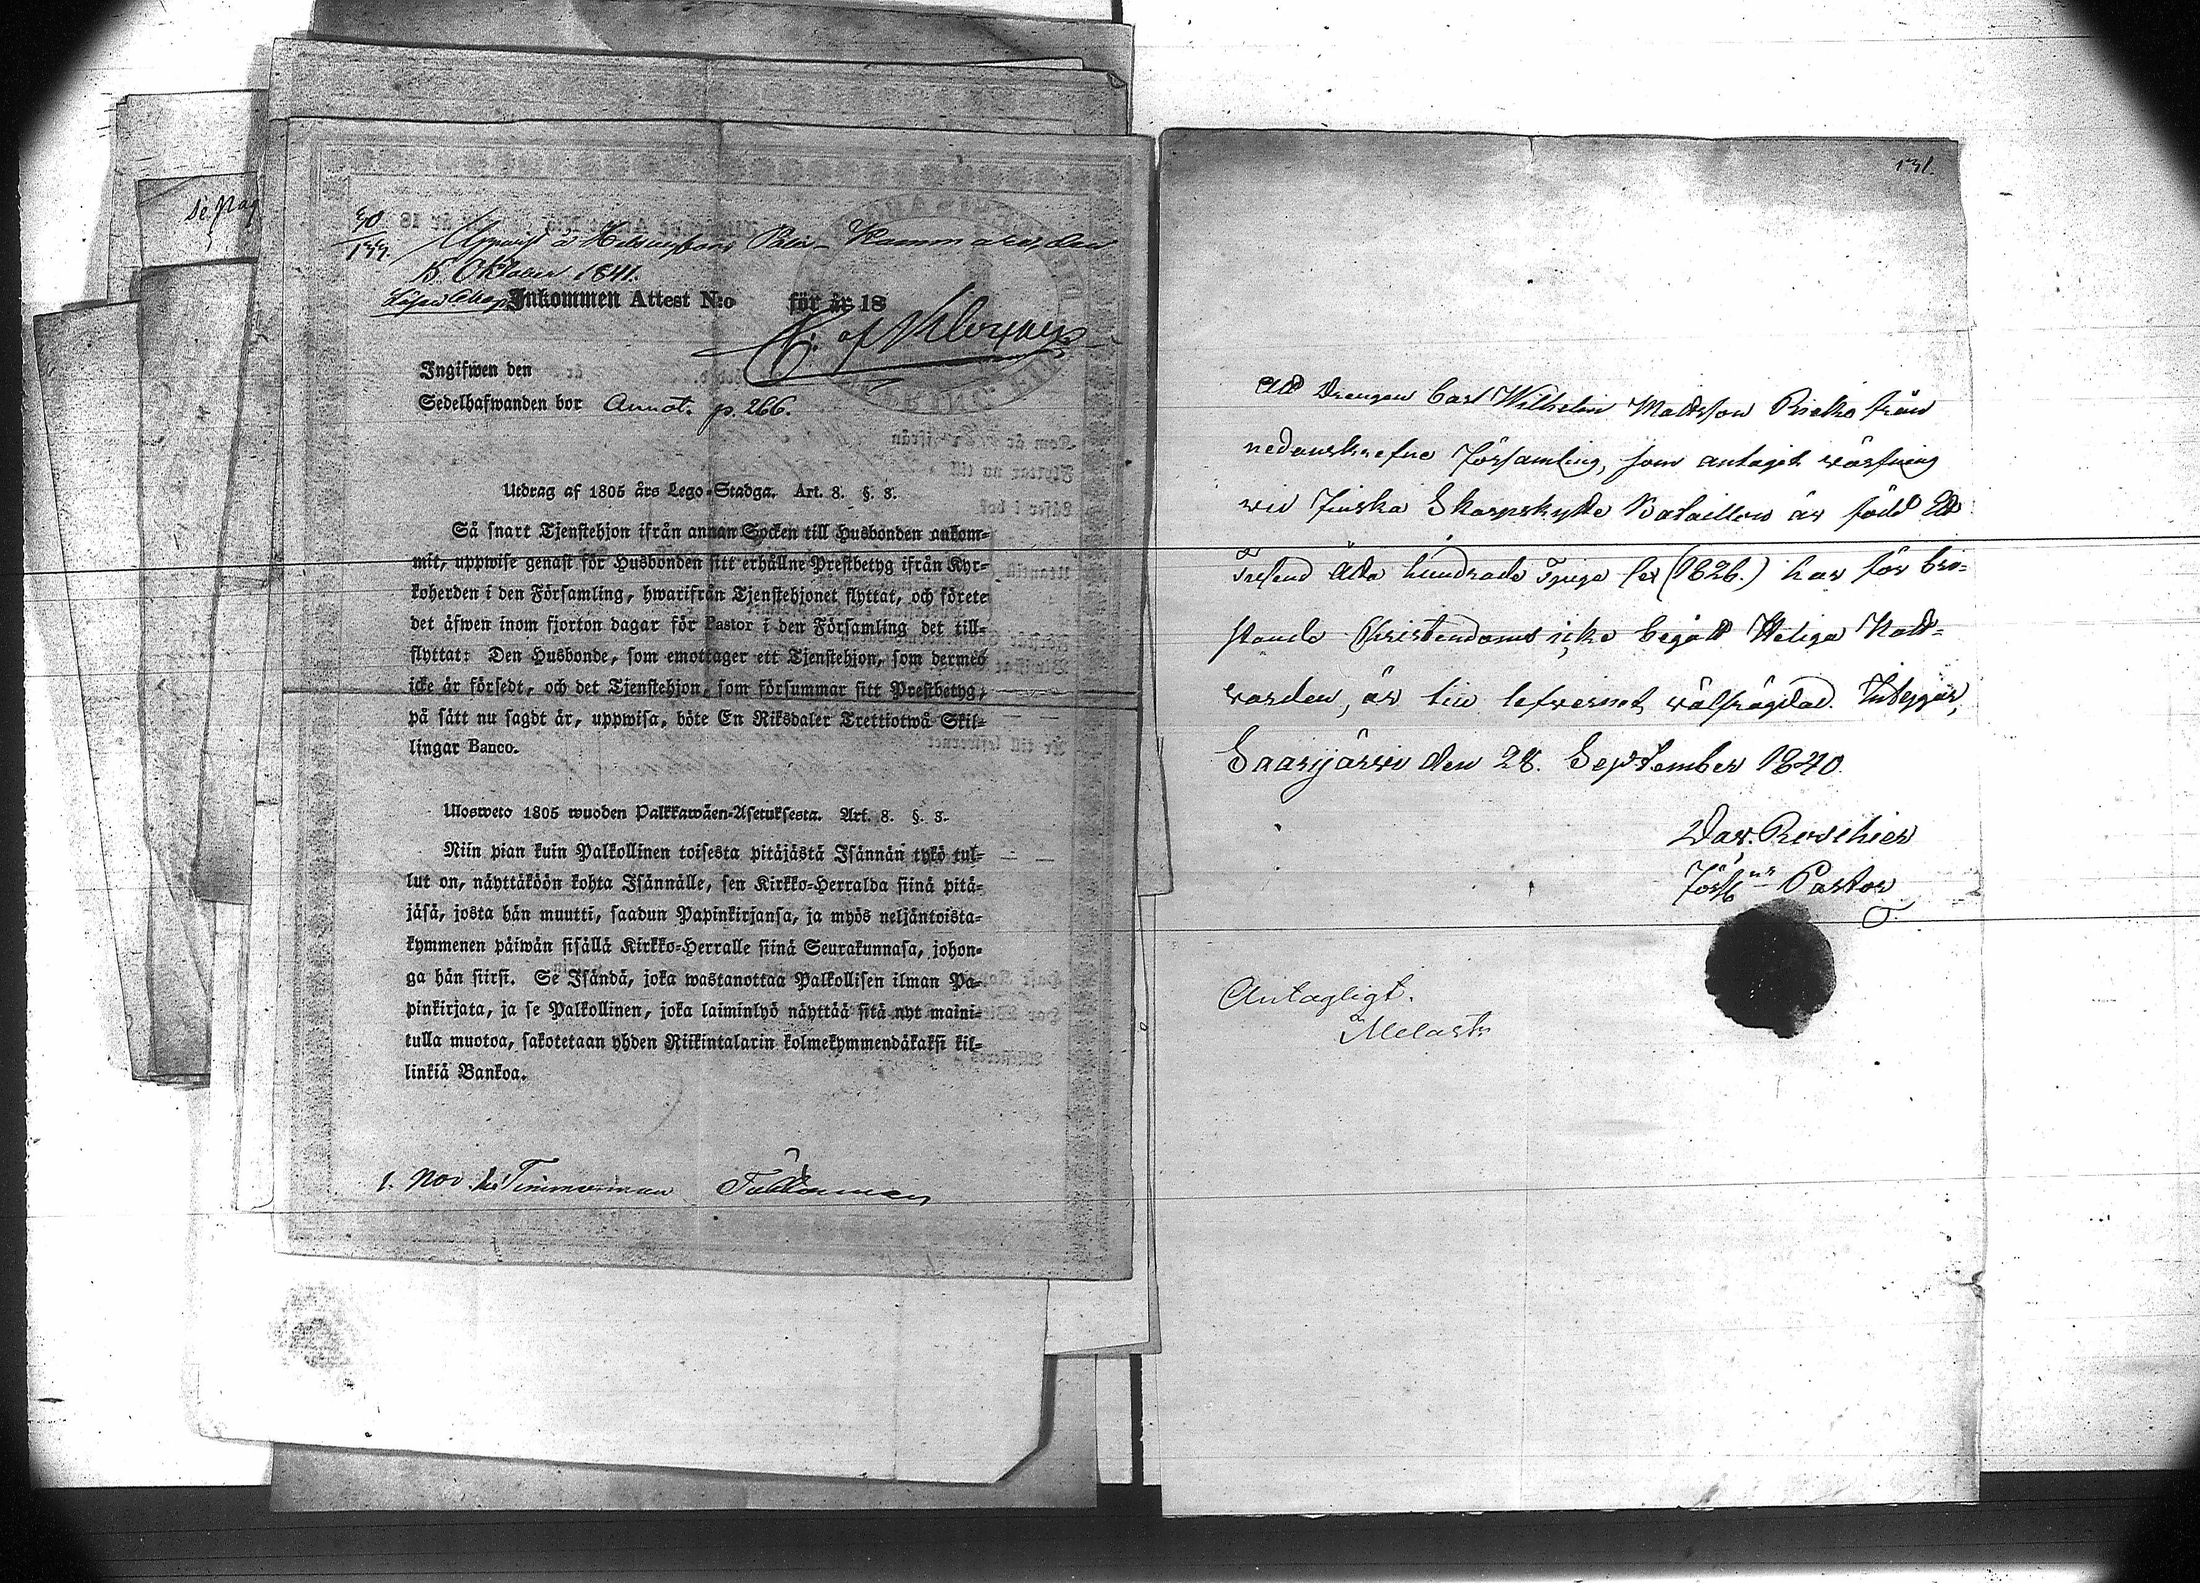 Se pag
90
137.
Uppvist å Helsingfors Poli- Kammare, den
15 Oktober 1841.
Inkommen Attest N:o för år 18
C. af
Ingifwen den
Sedelhafwanden bor Annot. p. 266.
Utdrag af 1805 års Lego-Stadga. Art. 8. §. 3.
Så snart Tjenstehjon ifrån annan Socken till Husbonden ankom-
mit, uppwise genast för Husbonden sitt erhållne Prestbetyg ifrån Kyr-
koherden i den Församling, hwarifrån Tjenstehjonet flyttat, och förete
det äfwen inom fjorton dagar för Pastor i den Församling det till-
flyttat: Den Husbonde, som emottager ett Tjenstehjon, som dermed
icke är försedt, och det Tjenstehjon, som försummar sitt Prestbetyg,
på sätt nu sagdt är, uppwisa, böte En Riksdaler Trettiotwå Skil-
lingar Banco.
Ulosweto 1805 wuoden Palkkawäen-Asetuksesta. Art. 8. §. 3.
Niin pian kuin Palkollinen toisesta pitäjästä Isännän tykö tul-
lut on, näyttäköön kohta Isännälle, sen Kirkko-Herralda siinä pitä-
jäsä, josta hän muutti, saadun Papinkirjansa, ja myös neljäntoista-
kymmenen päiwän sisällä Kirkko-Herralle siinä Seurakunnasa, johon-
ga hän siirsi. Se Isändä, joka wastanottaa Palkollisen ilman Pa-
pinkirjata, ja se Palkollinen, joka laiminlyö näyttää sitä nyt maini-
tulla muotoa, sakotetaan yhden Riikintalarin kolmekymmendäkaksi kil-
linkiä Bankoa.
1. Nov. Timmerman
131.
Att Drengen Carl Wilhelm Mattsson från
nedanskrefne församling, som antagit värfning
vid Finska Skarpskytte Bataillon är född Ett
Tusend Åtta hundrade Tjugu sex (1826.) har för bri-
stande Christendoms icke begått Heliga Natt-
varden, är till lefvernet välfrägdad. Intygar,
Saarijärvi den 28. September 1840.
Dav. Roschier
Pastor
Antagligt.